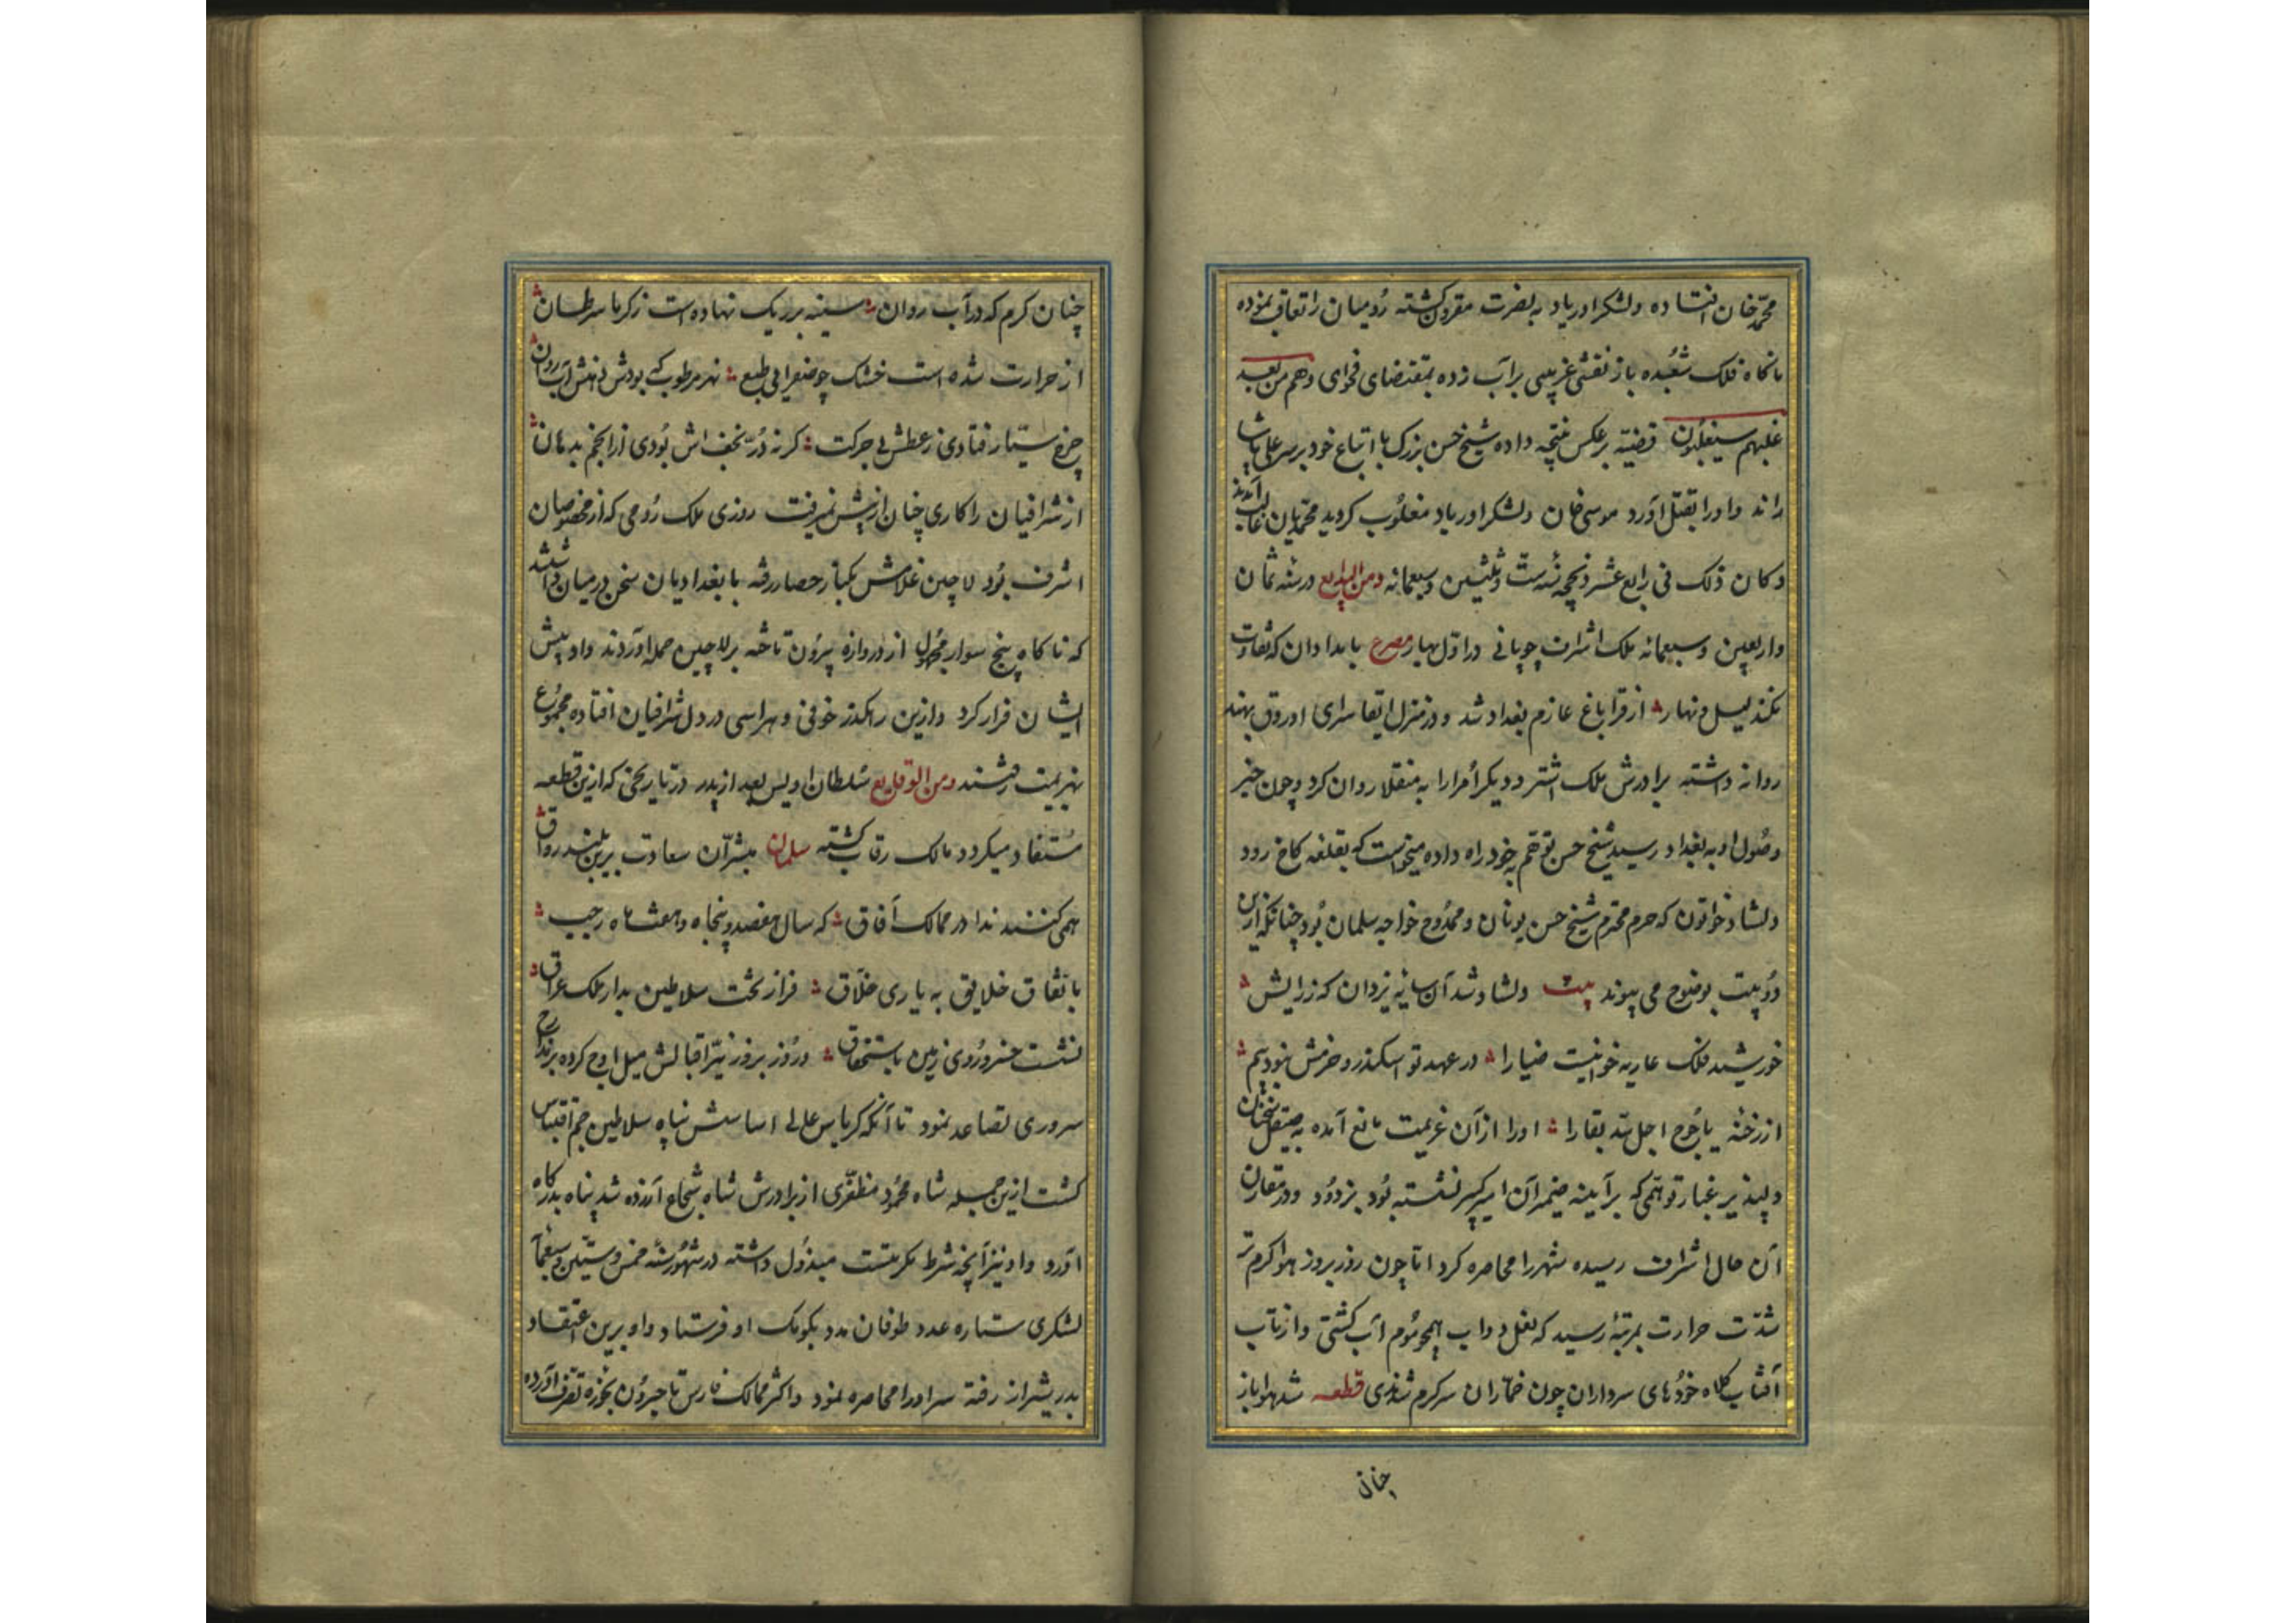 محمد خان افتاده و لشکر اوریاد به نصرت مقرون کشته رومیان را تعاقب نموده
ناکاه فلک شعبده باز نقشی غریبی بر آب زده بمقتضای فحوای وهم من بعد
غلبهم سیغلبون قضیه بر عکس نتیجه داده شیخ حسن بزرک با اتباع خود بر سر علی پاشا
راند و او را بقتل آورد موسی خان و لشکر اوریاد مغلوب کردید محمدیان غالب آمدند
و کان ذلک فی رابع عشر ذیحجه سنه ست و ثلثین و سبعمائه و من البدایع در سنه ثمان
و اربعین و سبعمائه ملک اشرف چوپانی در اول بهار مصرع بامدادان که تفاوت
نکند لیل و نهار از قراباغ عازم بغداد شد و در منزل ایقا سرای اوروق بهند
روانه داشته برادرش ملک اشتر و دیکر امرا را به منقلا روان کرد و چون خبر
وصول او به بغداد رسید شیخ حسن توهم بخود راه داده میخواست که بقلعه کماخ رود
دلشاد خواتون که حرم محترم شیخ حسن یونان و ممدوح خواجه سلمان بود چنانکه ازین
دو بیت بوضوح می پیوندد بیت دلشاد شد آن سایه یزدان که ز رایش
خورشید فلک عاریه خواهیست ضیا را در عهد تو اسکندر و خرمش نبودیم
از رخنه یاجوج اجل سد بقا را او را از آن عزیمت مانع آمده به صیقل سخنان
دلپذیر غبار توهمی که بر آیینه ضمیر آن امیر کبیر نشسته بود بزدود و در مقارن
آن حال اشرف رسیده شهر را محاصره کرد اما چون روز بروز هوا کرم تر
شدت حرارت بمرتبه رسید که نعل دواب همچو موم آب کشتی و از تاب
آفتاب کلاه خودهای سرداران چون خماران سرکرم شدی قطعه شد هوا باز
چنان
چنان کرم که در آب روان سینه بر ریک نهاده است ز کرما سرطان
از حرارت شده است خشک چو صفرایی طبع نهر مرطوب که بودش دهنش آب روان
چرخ سیار فتادی ز عطش بی حرکت کر نه در نجف اش بودی از انجم بدهان
اشرافیان را کاری چنان از پیش نمیرفت روزی ملک رومی که از مخصوصان
اشرف بود لاچین غلامش بکنار حصار رفته با بغدادیان سخن در میان داشتند
که ناکاه پنج سوار مجهول از دروازه بیرون تاخته بر لاچین حمله آوردند و او پیش
ایشان فرار کرد و ازین رهکذر خوفی و هراسی در دل اشرافیان افتاده مجموع
بهزیمت رفتند و من الوقایع سلطان اویس بعد از پدر در تاریخی که ازین قطعه
مستفاد میکردد مالک رقاب کشته سلمان مبشران سعادت برین بلند رواق
همی کنند ندا در ممالک آفاق که سال هفصد و پنجاه و هفت ماه رجب
باتفاق خلایق به یاری خلاق فراز تخت سلاطین بدار ملک عراق
نشست خسرو روی زمین باستحقاق و روز بروز نیر اقبالش میل اوج کرده بر مدارج
سروری تصاعد نمود تا آنکه کریاس عالی اساسش پناه سلاطین جم اقتباس
کشت ازین جمله شاه محمود مظفری از برادرش شاه شجاع آزرده شد پناه بدرکاه
آورد و او نیز آنچه شرط مکرمتست مبذول داشته در شهور سنه خمس و ستین و سبعمائه
لشکری ستاره عدد طوفان مدد بکومک او فرستاد و او برین اعتقاد
بدر شیراز رفته سر او را محاصره نمود و اکثر ممالک فارس تا جیرون بحوزه تصرف آورده